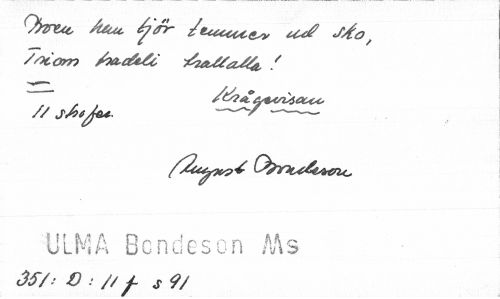 Broen han kjör temmer ud sko,
Triom tradeli trallalla!
11 strofer.
Krågevisan
August Bondeson
ULMA Bondeson Ms
351: D: 11 f s 91